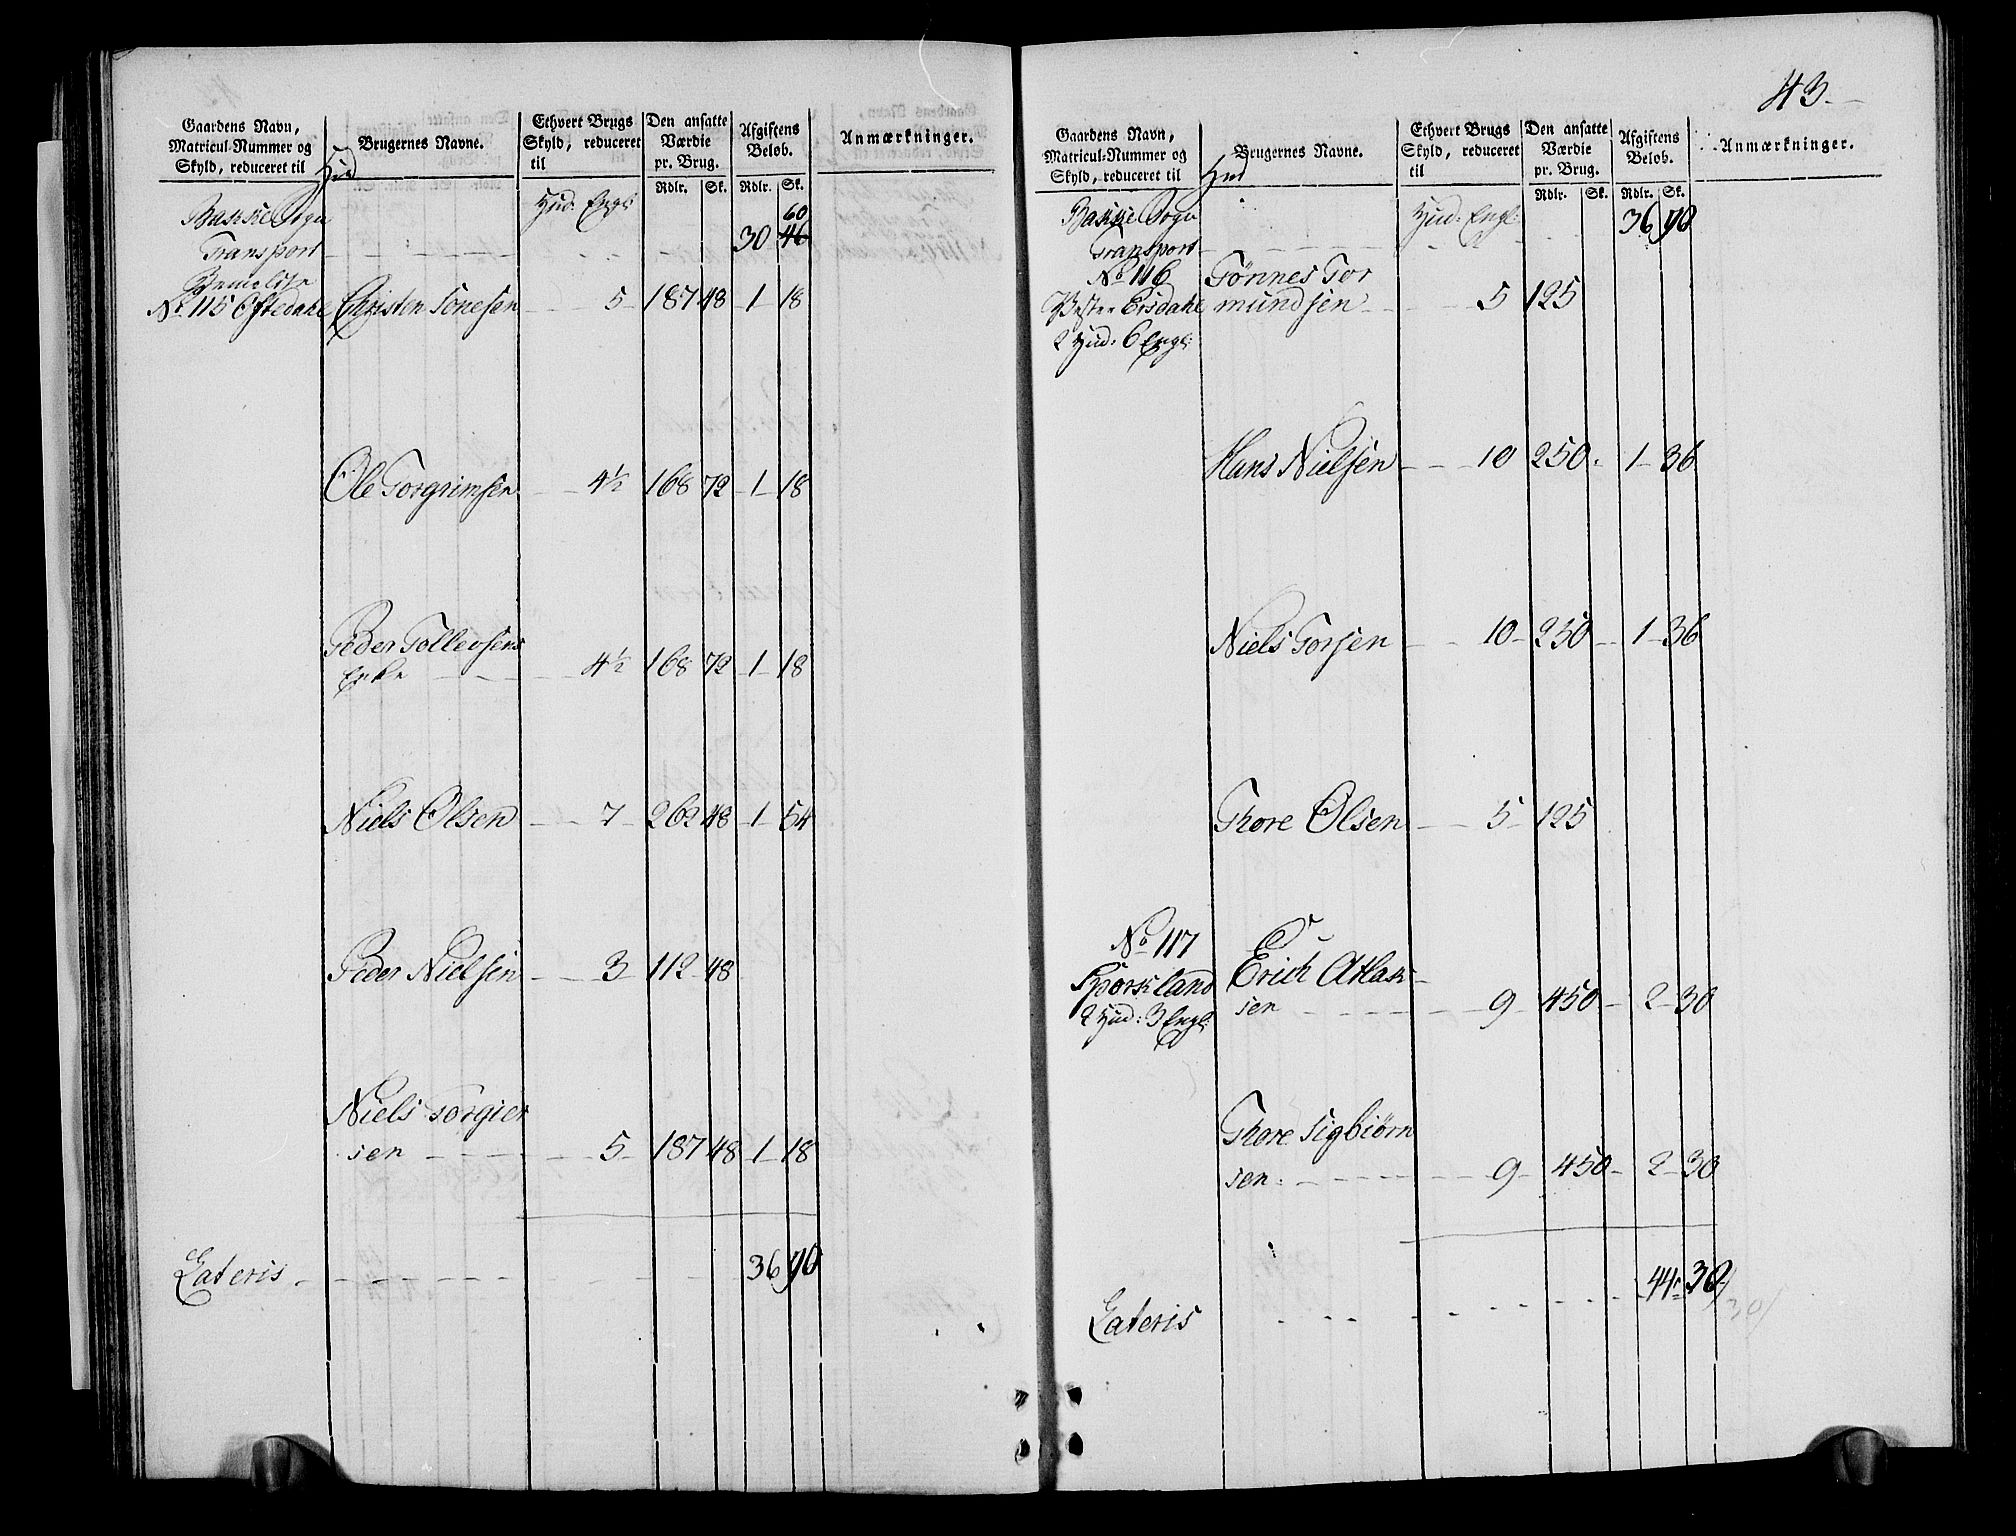 Gaardens Navn, Matricul-Nummer og Skyld, reduceret til Hud
Brugernes Navne.
Ethvert Brugs Skyld, reduceret til
Den ansatte Værdie pr. Brug.
Afgiftens Beløb.
Anmærkninger.
Rdlr. Sk. Rdlr. Sk.
Bakke Sogn Hud: Engl: 60
Transport 30 46
No 115 Oftedahl Christen Tonesen 5 187 48 1 18
Ole Torgrimsen 4½ 168 72 1 18
Peder Tollevsens
Enke 4½ 168 72 1 18
Niels Olsen 7 262 48 1 54
Peder Nielsen 3 112 48
Niels Torgier
sen 5 187 48 1 18
Lateris 36 90
43.
Gaardens Navn, Matricul-Nummer og Skyld, reduceret til Hud
Brugernes Navne.
Ethvert Brugs Skyld, reduceret til
Den ansatte Værdie pr. Brug.
Afgiftens Beløb.
Anmærkninger.
Rdlr. Sk. Rdlr. Sk.
Bakke Sogn Hud: Engl: 36 90
Transport
No 116 Tönnes Tor
Vester Eisdahl mundsen 5 125
2 Hud: 6 Engl:
Hans Nielsen 10 250 1 36
Niels Torsen 10 250 1 36
Thore Olsen 5 125
No 117
Sporkland Erich Atlak
2 Hud: 3 Engl: sen 9 450 2 30
Thore Sigbiørn
sen 9 450 2 30
Lateris 44 30
30